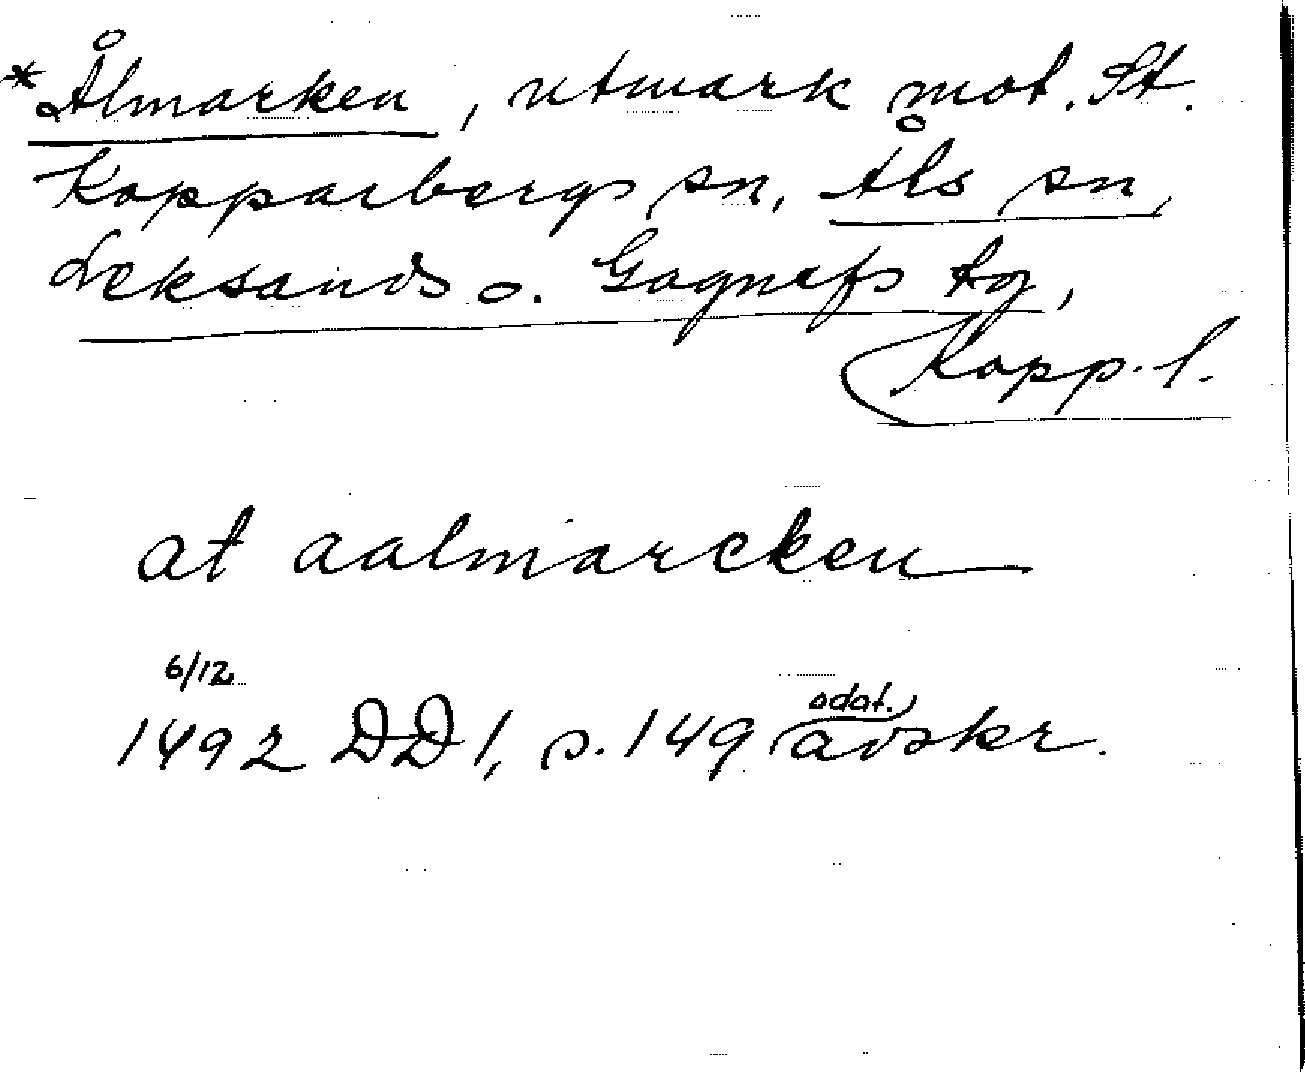 *Ålmarken, utmark mot. St.
Kopparbergs sn, Åls sn,
Leksands o. Gagnefs tg,
Kopp. l.
at aalmarcken
6/12
1492 DD 1, s. 149 odat. avskr.